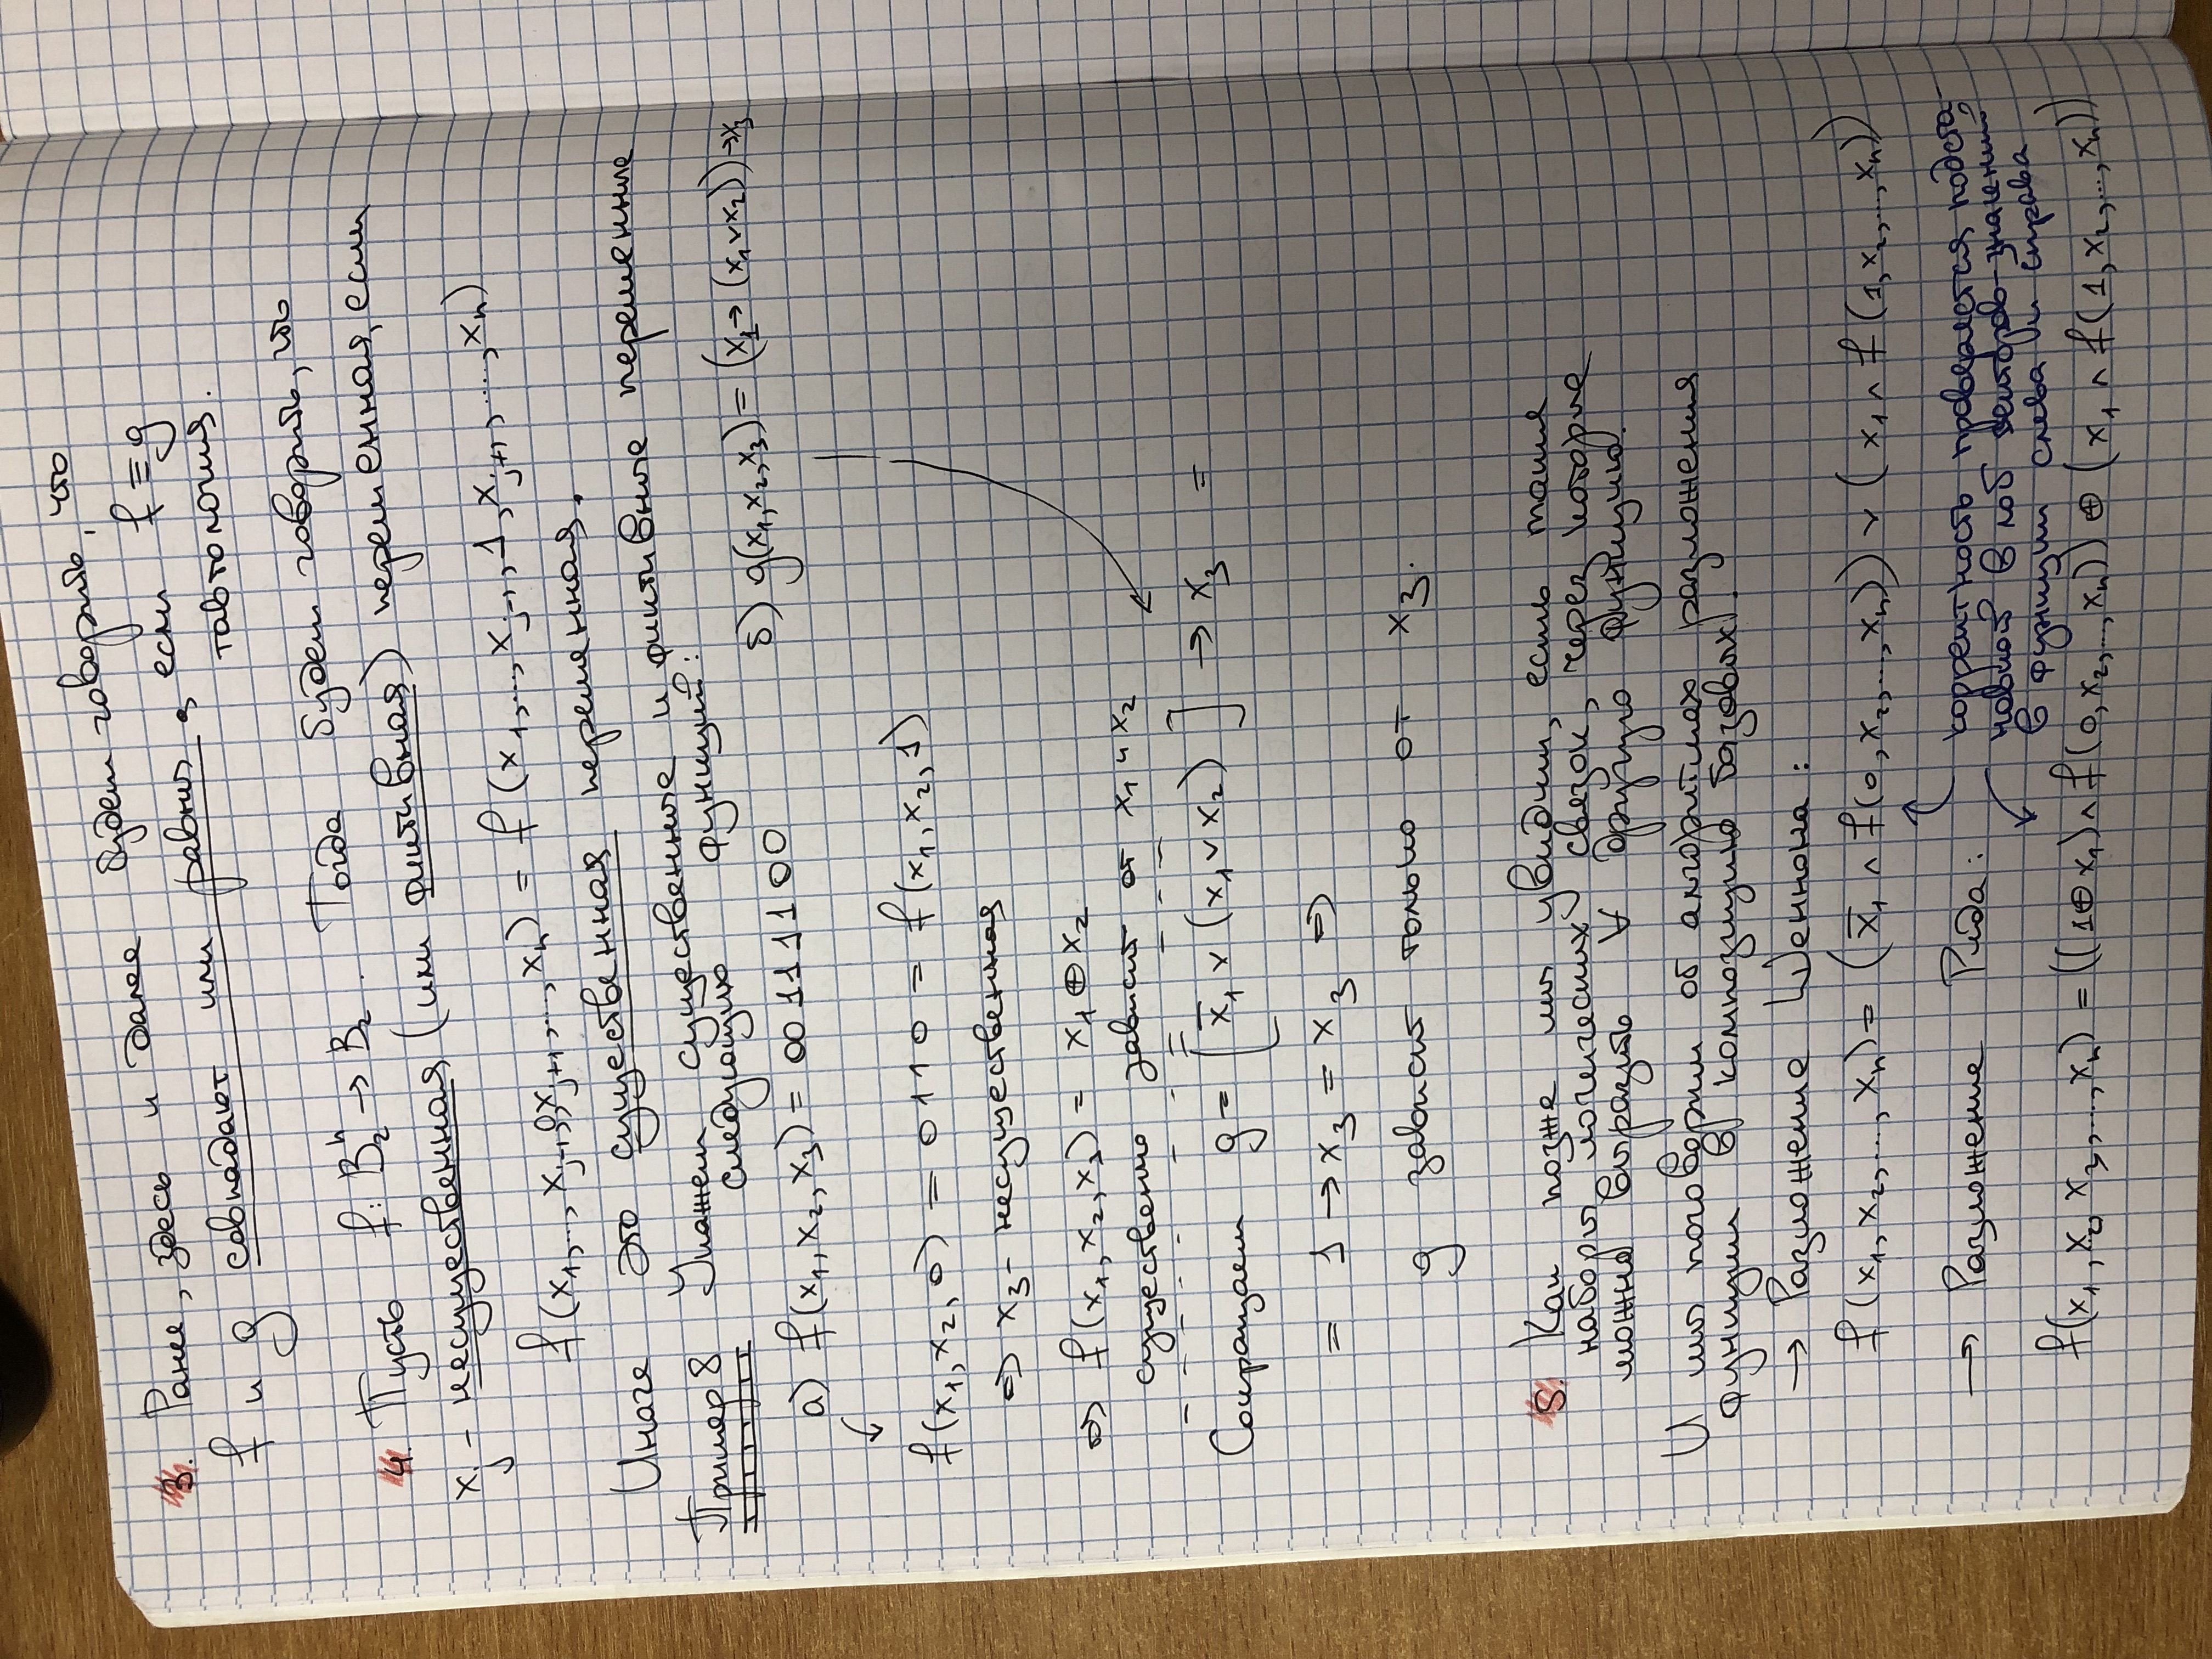 3. Ранее, здесь и далее будем говорить, что
f и g совпадают или равны, если f ≡ g
тавтология.
4. Пусть f: B₂ⁿ → B₂. Тогда будем говорить, что
xⱼ - несущественная (или фиктивная) переменная, если
f(x₁,..., xⱼ₋₁,0,xⱼ₊₁,...,xₙ) = f(x₁,..., xⱼ₋₁,1,xⱼ₊₁,....,xₙ)
Иначе это существенная переменная.
Пример 8 Укажем существенные и фиктивные переменные
следующих функций:
а) f(x₁,x₂,x₃) = 00111100
б) g(x₁,x₂,x₃) = (x₁→ (x₁∨x₂))→x₃
f(x₁,x₂,0) = 0110 = f(x₁,x₂,1)
⇒ x₃- несущественная
⇒ f(x₁,x₂,x₃) = x₁⊕x₂
существенно зависит от x₁ и x₂
Сокращаем g = [x̅₁ ∨ (x₁∨x₂)] → x₃ =
= 1 → x₃ = x₃ ⇒
g зависит только от x₃.
5. Как позже мы увидим, есть такие
наборы логических связок, через которые
можно выразить ∀ другую функцию.
И мы поговорим об алгоритмах разложения
функции в композицию базовых.
→ Разложение Шеннона:
f(x₁,x₂,...,xₙ) = (x̅₁ ∧ f(0,x₂,...,xₙ)) ∨ (x₁ ∧ f(1,x₂,...,xₙ))
корректность проверяется подста-
новкой в лоб векторов-значений
в функции слева и справа
→ Разложение Рида:
f(x₁,x₂,x₃,...,xₙ) = ((1⊕x₁)∧f(0,x₂,...,xₙ)) ⊕ (x₁ ∧ f(1,x₂,...,xₙ))